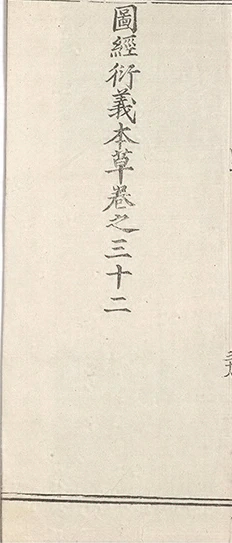 圖經衍義本草卷之三十二